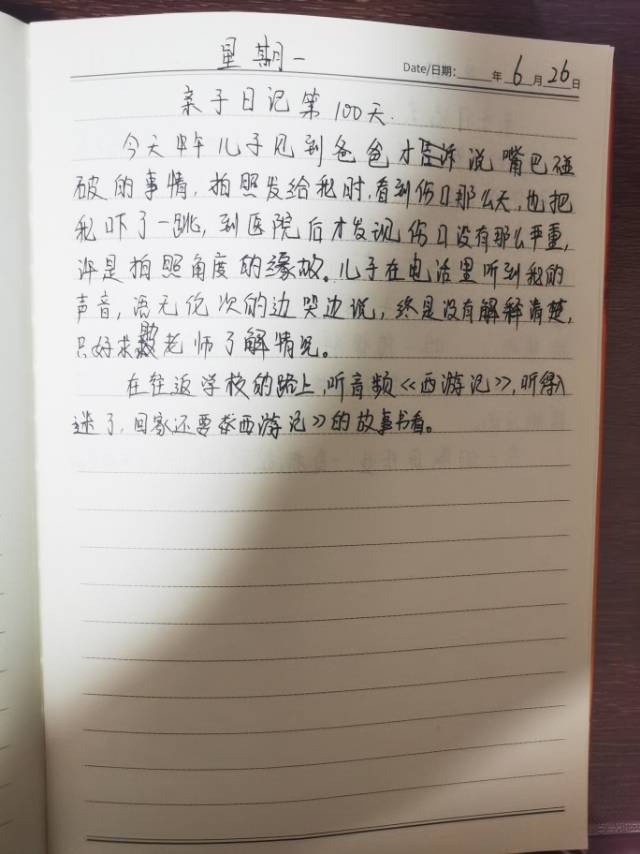 星期一
Date/日期: 年 6 月 26 日
亲子日记第100天.
今天中午儿子见到爸爸才告诉说嘴巴碰
破的事情,拍照发给我时,看到伤口那么大,也把
我吓了一跳,到医院后才发现伤口没有那么严重,
许是拍照角度的缘故。儿子在电话里听到我的
声音,语无伦次的边哭边说,终是没有解释清楚,
只好求救老师了解情况。
在往返学校的路上,听音频《西游记》,听得入
迷了,回家还要拿西游记》的故事书看。